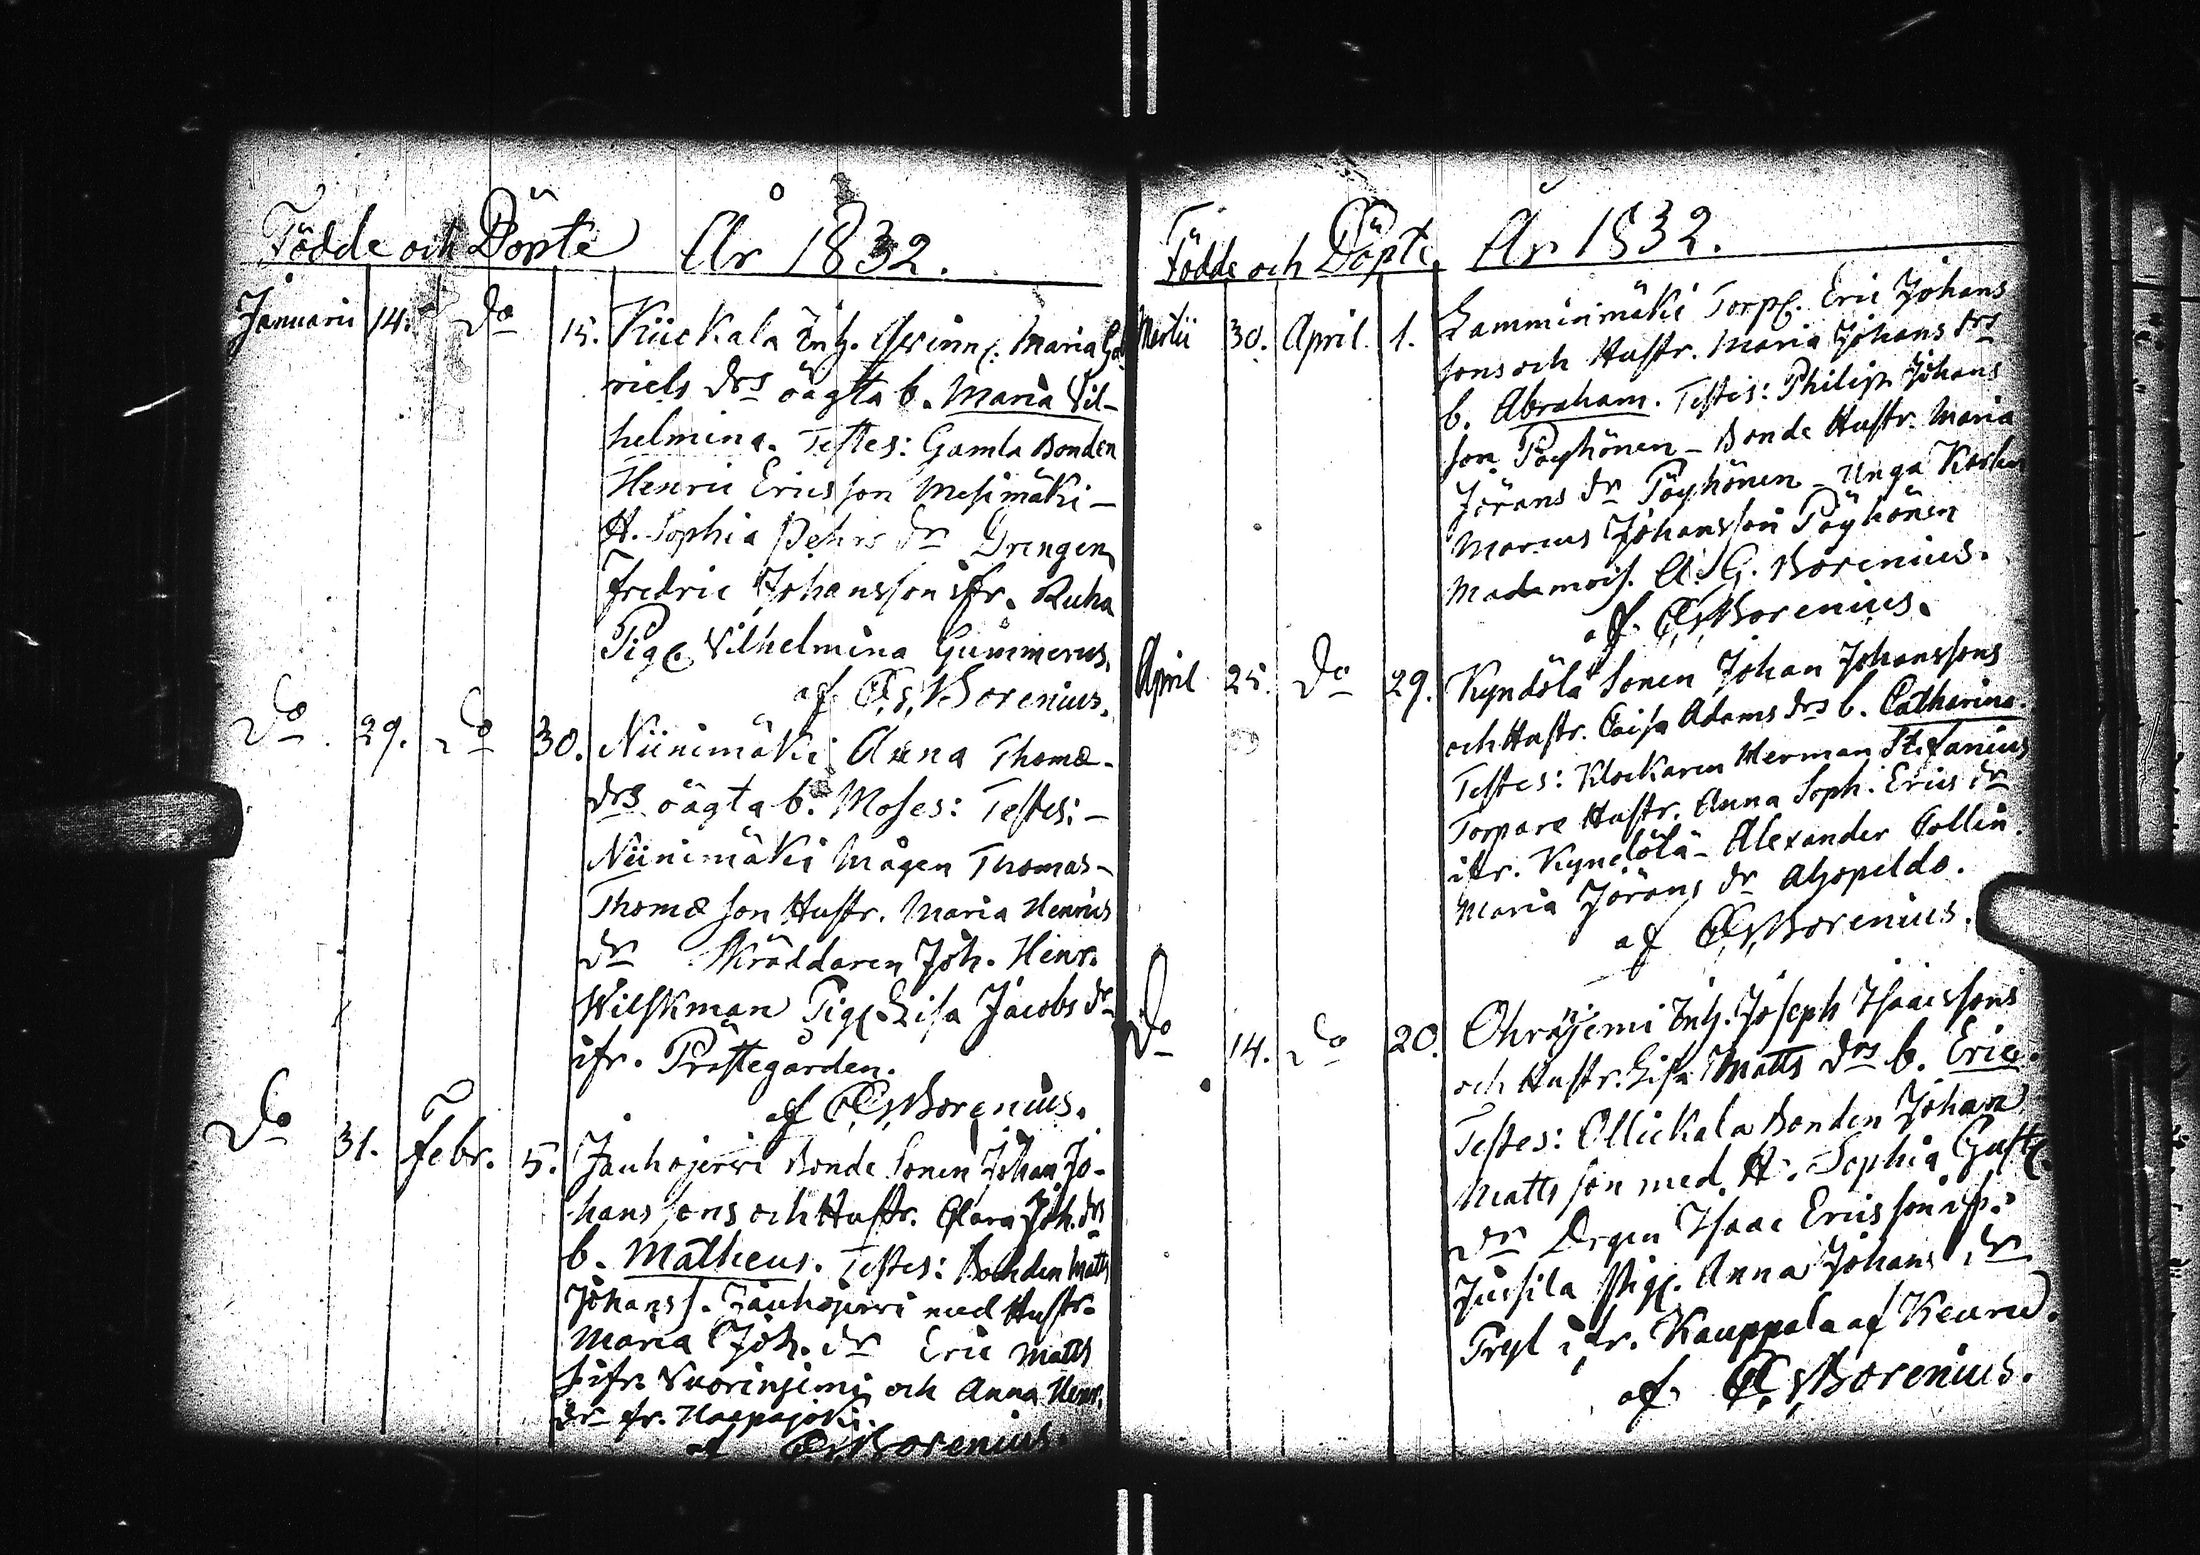 Födde och Döpte År 1832.
Januarii 14. Do 15. Kiickala Inh. Qvinn. Maria Gab
riels drs oägta b. Maria Vil-
helmina. Testes: Gamla Bonden
Henric Ericsson Mesimäki –
H. Sophia Pehrs dr Drengen
Fredric Johansson ifr. Ruha
Pig. Vilhelmina Gummerus.
af Borenius.
Do 29. Do 30. Niinimäki Anna Thomæ-
drs oägta b. Moses: Testes: –
Niinimäki Mågen Thomas –
Thomæ son Hustr. Maria Henrics
dr Skräddaren Joh. Henr.
Wilskman Pig. Lisa Jacobs dr
ifr. Prästegården.
af Borenius.
Do 31. Febr. 5. Jauhojervi Bonde Sonen Johan Jo-
hans sons och Hustr. Clara Joh. drs
b. Matheus. Testes: Bonden Matts
Johans s. Jauhojervi med Hustr.
Maria Joh. dr Eric Matts
s. ifr. Vuorinjemi och Anna Henr.
dr fr. Haapajoki.
af Borenius.
Födde och Döpte År 1832.
Martii 30. April. 1. Lamminmäki Torp. Eric Johans
sons och Hustr. Maria Johans drs
b. Abraham. Testis: Philip Johans
son Pöyhönen – Bonde Hustr. Maria
Jörans dr Pöyhönen – Unga Karlen
Marcus Johansson Pöyhönen
Madamois. A: G. Borenius.
af Borenius.
April 25. Do 29. Kyndölä Sonen Johan Johanssons
och Hustr. Caisa Adams drs b. Catharina.
Testes: Klockaren Herman Stefanius
Torpare Hustr. Anna Soph. Erics dr
ifr. Kyndölä – Alexander Collin.
Maria Jörans dr Ahopeldo.
af Borenius.
Do 14. Do 20. Ohranjemi Inh. Joseph Isacssons
och Hustr. Lisa Matts drs b. Eric.
Testes: Ollickala Bonden Johan
Matts son med H. Sophia Gust.
dr Drgen Isaac Ericsson ifr.
Jussila Pig. Anna Johans dr
Fryl ifr. Kauppala af Keuru.
af Borenius.